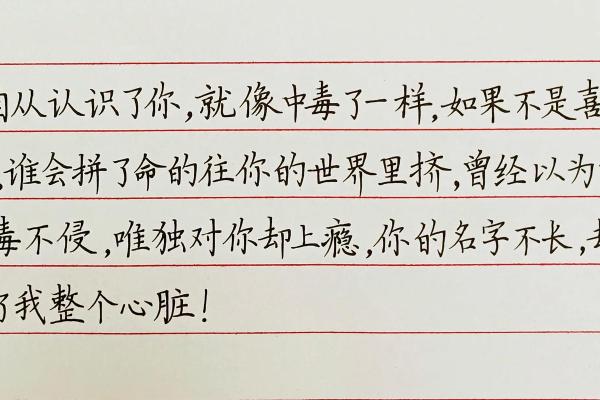 自从认识了你,就像中毒了一样,如果不是喜
,谁会拼了命的往你的世界里挤,曾经以为
毒不侵,唯独对你却上瘾,你的名字不长,却
了我整个心脏!